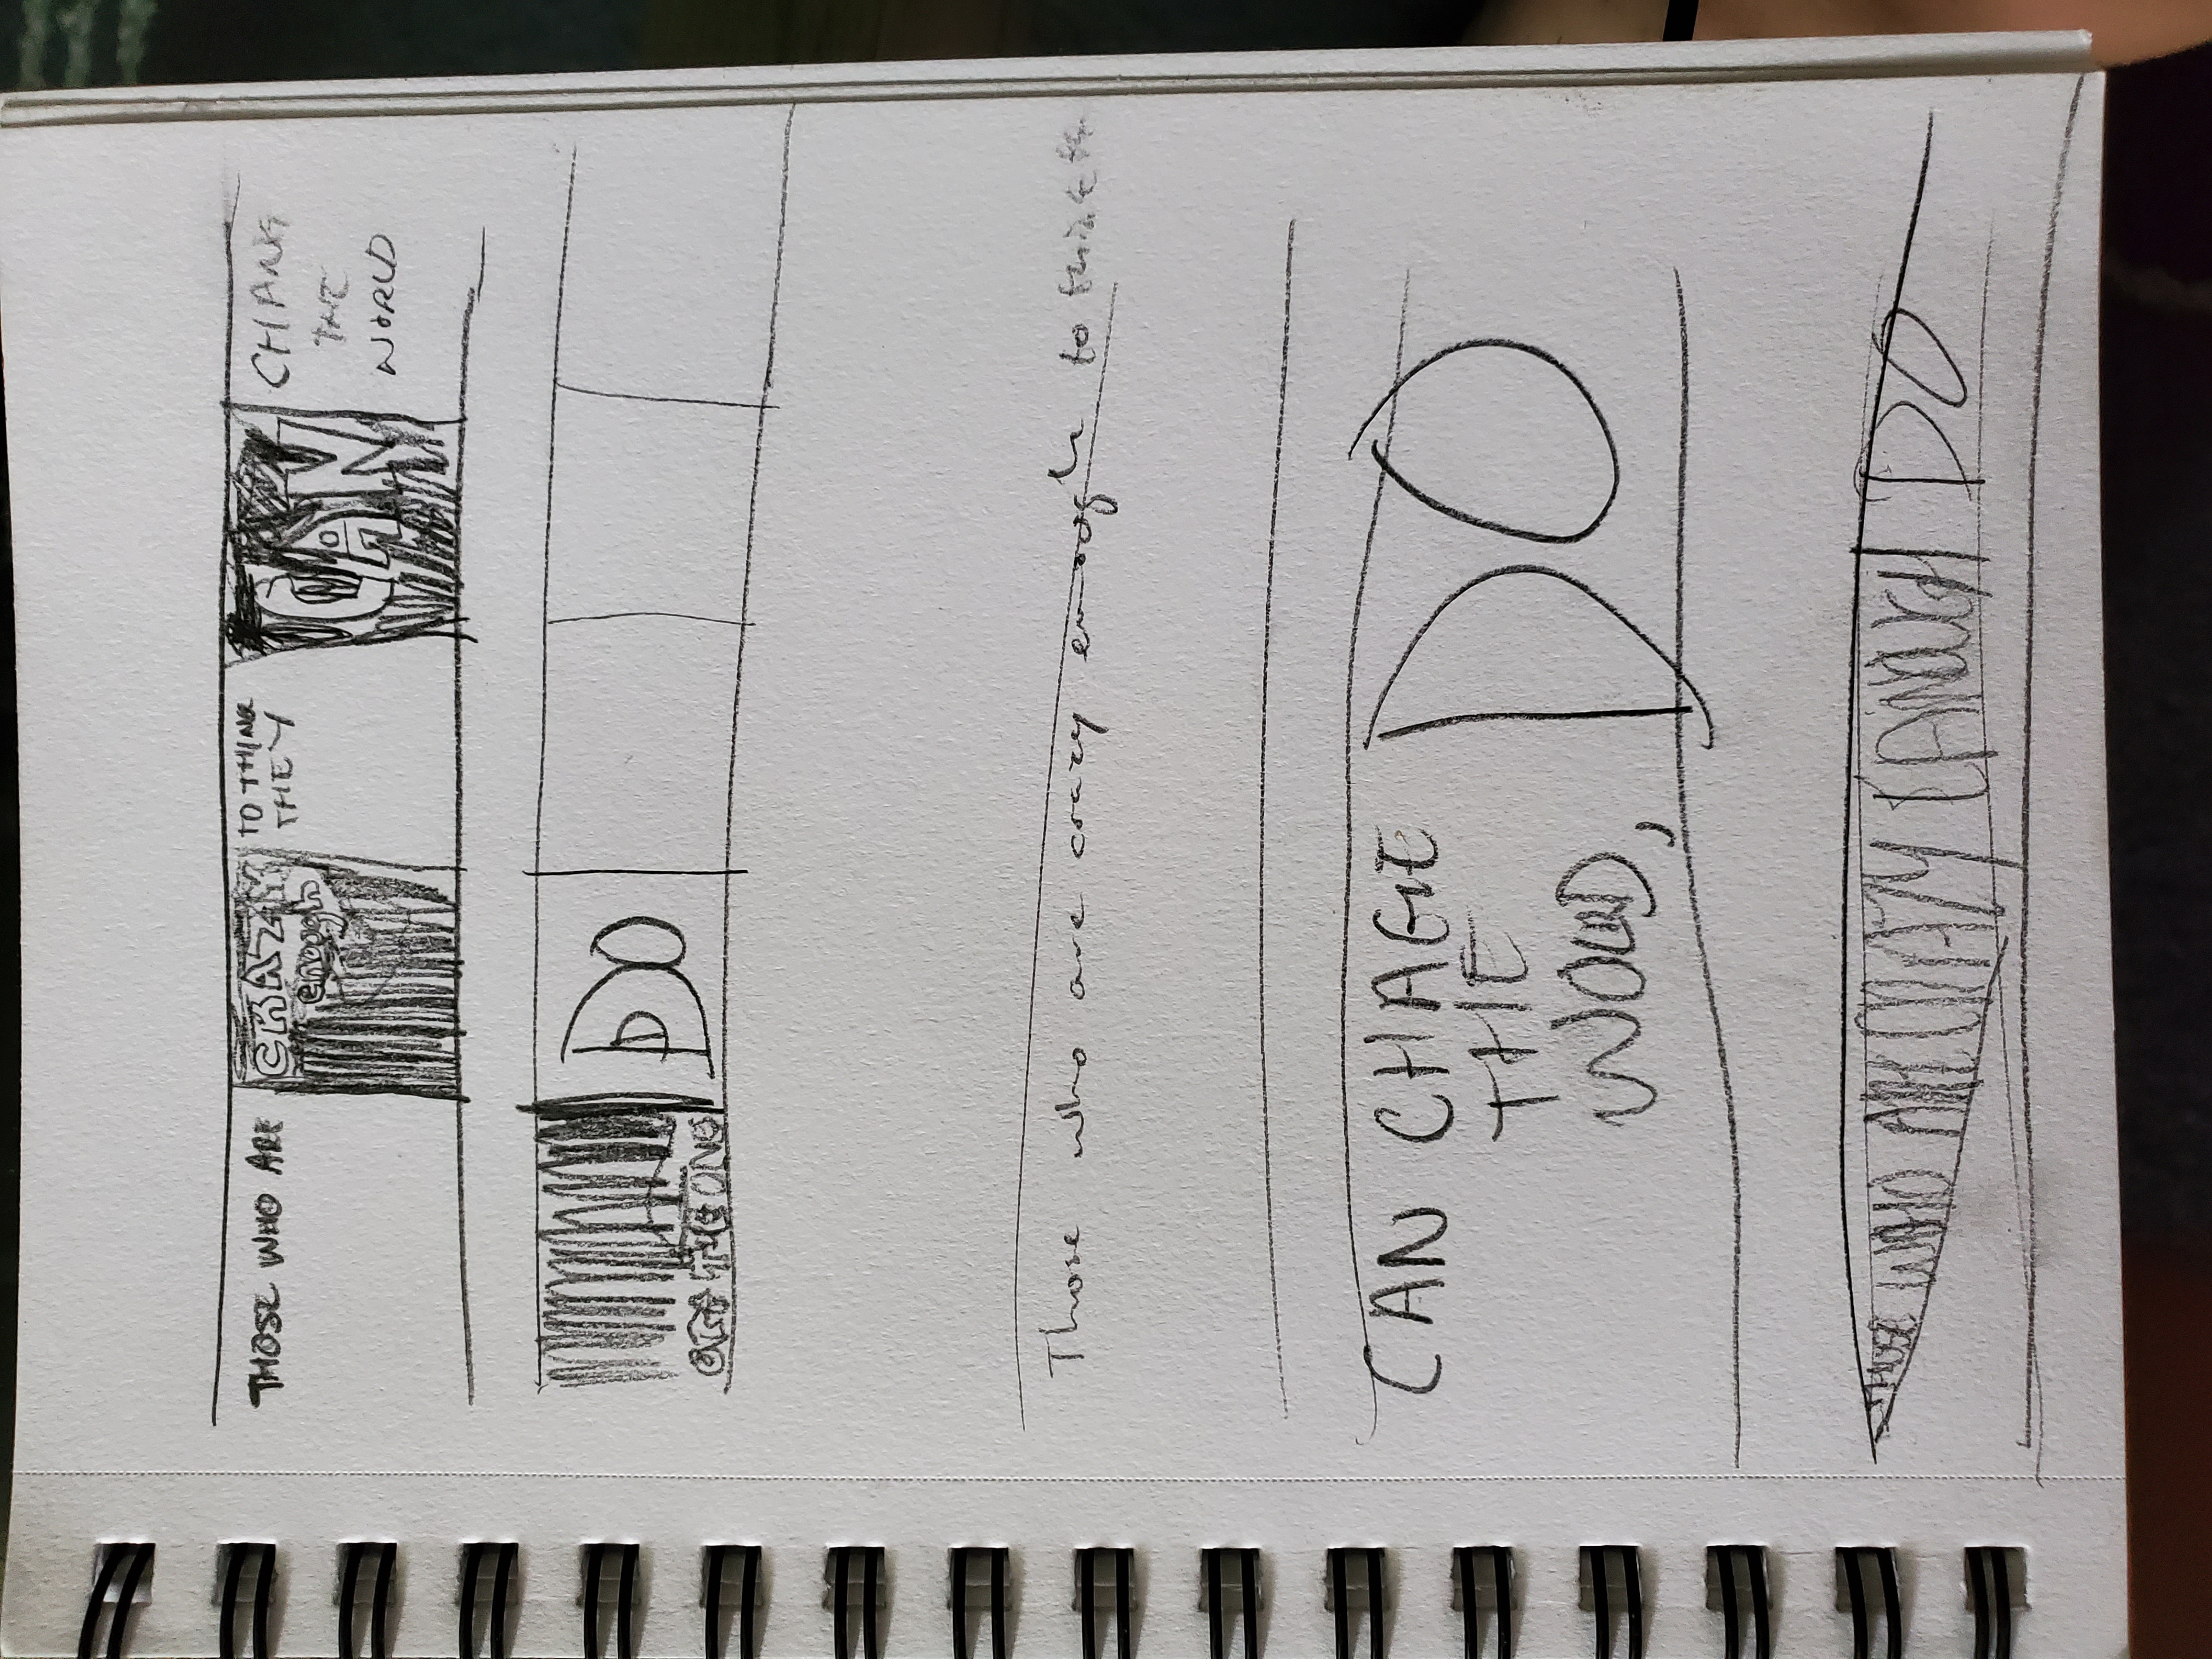 THOSE WHO ARE
CRAZY
enough
TO THINK
THEY
CAN
CHANG
THE
WORLD
ARE THE ONS
DO
Those who are crazy enough to think th
CAN CHAGE
THE
WOLRD,
DO
THOSE WHO ARE CRAZY EANOUGH DO